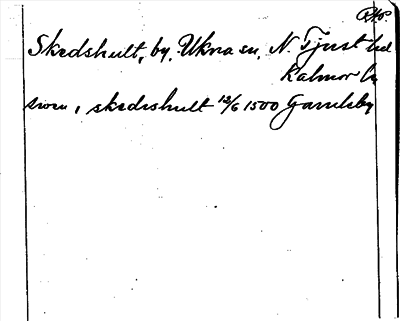 Skedshult, by, Ukna sn, N. Tjust hd
Kalmar län
skedeshult 12/6 1500 Gamleby